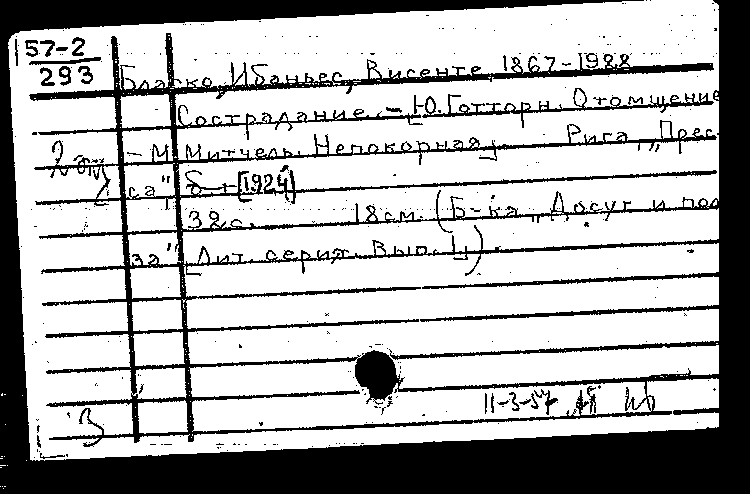 57-2
293
Бласко Ибаньес, Висенте, 1867-1928
Сострадание. - [Ю. Готторн. Отомщение
- М. Митчель. Непокорная]. Рига, „Прес-
са", [1924]
32 с. 18 см. (Б-ка „Досуг и поль
за" [Лит. серия. Вып. 4]).
З
11-3-57